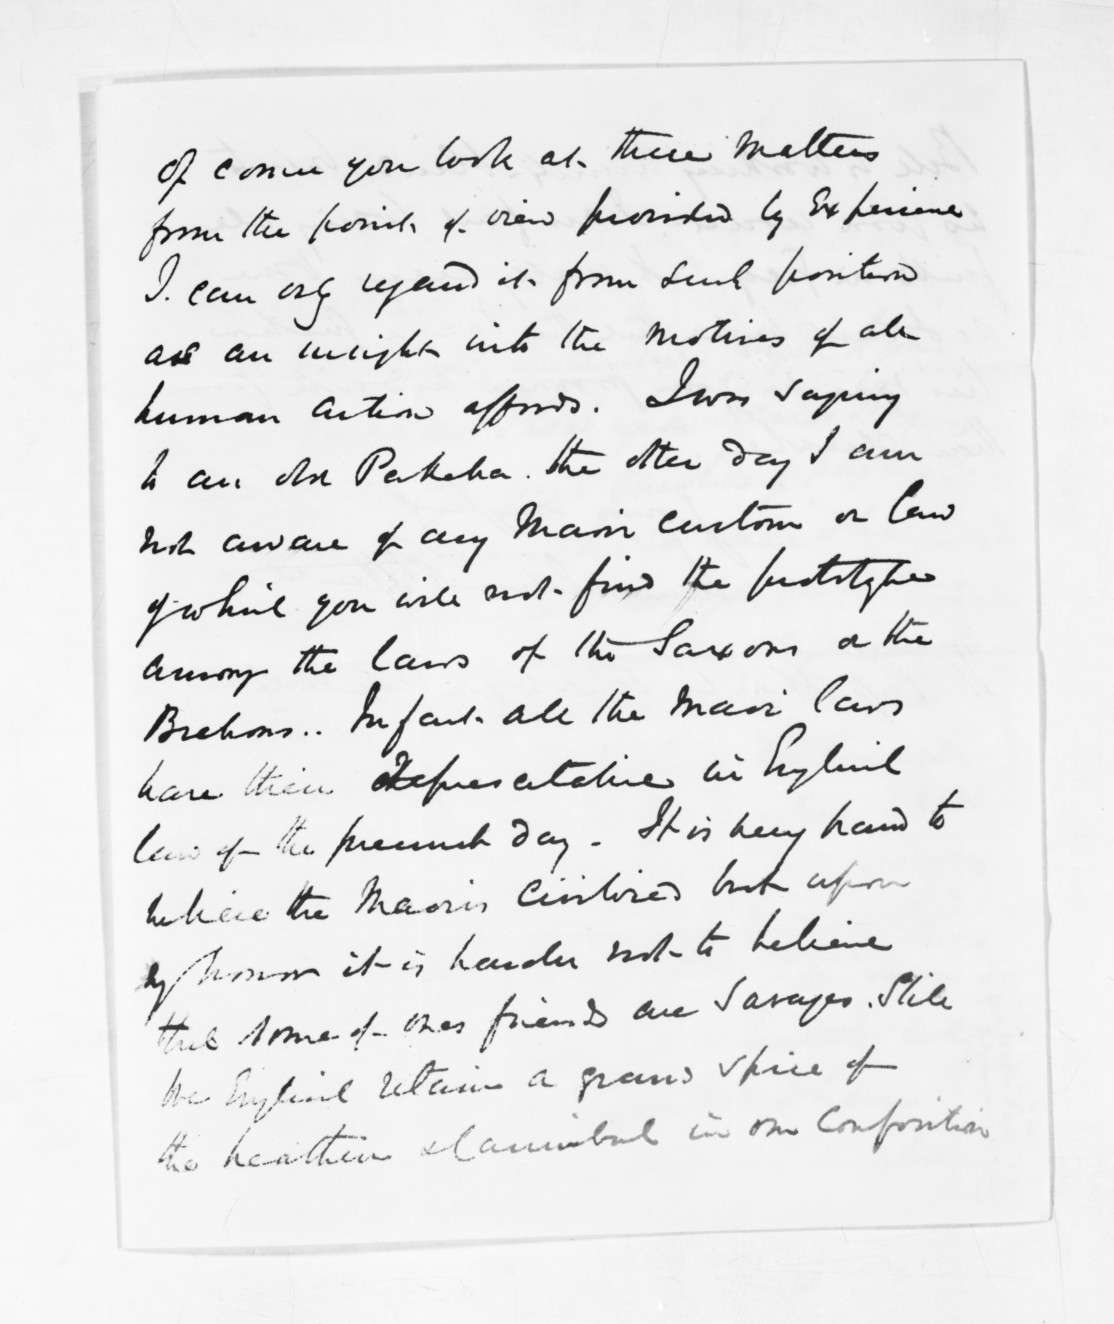 Of course you look at these Matters
from the point of view provided by Experience
I can only regard it from such position
as an insight into the Motives of all
human action affords. I was saying
to an old Pakeha the other day I am
not aware of any Maori custom or law
of which you will not find the prototype
among the laws of the Saxons or the
Brehons.. In fact all the Maori laws
have their Representative in English
law of the present day. It is very hard to
believe the Maoris civilized but upon
my honor it is harder not to believe
that some of ones friends are Savages. Still
we English retain a grand spice of
the heathen & Cannibal in our composition